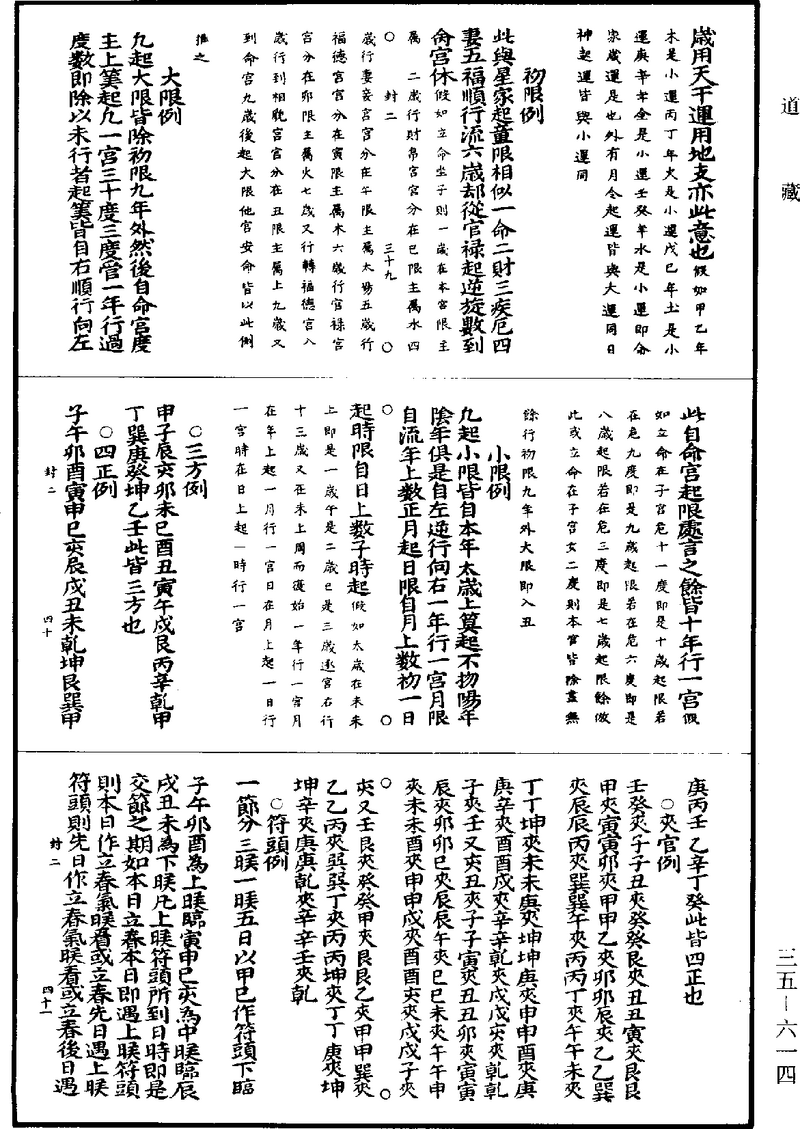 歲用天干運用地支亦此意也假如甲乙年
木是小運丙丁年火是小運戊己年土是小
運庚辛年金是小運壬癸年水是小運即命
家歲運是也外有月令起運皆與大運同日
神起運皆與小運同
初限例
此與星家起童限相似一命二財三疾厄四
妻五福順行流六歲却從官祿起逆旋數到
命宮休假如立命坐子則一歲在本宮限主
屬　二歲行財帛宮宮分在巳限主屬水四
封二
三十九
歲行妻妾宮宮分在午限主屬太陽五歲行
福德宮宮分在寅限主屬木六歲行官祿宮
宮分在卯限主屬火七歲又行轉福德宮八
歲行到相貌宮宮分在丑限主屬土九歲又
到命宮九歲後起大限他宮安命皆以此例
推之
大限例
凡起大限皆除初限九年外然後自命宮度
主上筭起凡一宮三十度三度管一年行過
度數即除以未行者起筭皆自右順行向左
此自命宮起限處言之餘皆十年行一宮假
如立命在子宮危十一度即是十歲起限若
在危九度即是九歲起限若在危六度即是
八歲起限若在危三度即是七歲起限餘倣
此或立命在子宮女二度則本宮皆除盡無
餘行初限九年外大限即入丑
小限例
凡起小限皆自本年太歲上筭起不拘陽年
陰年俱是自左逆行向右一年行一宮月限
自流年上數正月起日限自月上數初一日
起時限自日上數子時起假如太歲在未未
上即是一歲午是二歲巳是三歲逐宮右行
十三歲又在未上周而復始一年行一宮月
在年上起一月行一宮日在月上起一日行
一宮時在日上起一時行一宮
○三方例
申子辰亥卯未巳酉丑寅午戌艮丙辛乾甲
丁巽庚癸坤乙壬此皆三方也
○四正例
子午卯酉寅申巳亥辰戌丑未乾坤艮巽甲
封二
四十
庚丙壬乙辛丁癸此皆四正也
○夾宮例
壬癸夾子子丑夾癸癸艮夾丑丑寅夾艮艮
甲夾寅寅卯夾甲甲乙夾卯卯辰夾乙乙巽
夾辰辰丙夾巽巽午夾丙丙丁夾午午未夾
丁丁坤夾未未庚夾坤坤庚夾申申酉夾庚
庚辛夾酉酉戌夾辛辛乾夾戌戌亥夾乾乾
子夾壬又亥丑夾子子寅夾丑丑卯夾寅寅
辰夾卯卯巳夾辰辰午夾巳巳未夾午午申
夾未未酉夾申申戌夾酉酉亥夾戌戌子夾
亥又壬艮夾癸癸甲夾艮艮乙夾甲甲巽夾
乙乙丙夾巽巽丁夾丙丙坤夾丁丁庚夾坤
坤辛夾庚庚乾夾辛辛壬夾乾
○符頭例
一節分三䐉一䐉五日以甲巳作符頭下臨
子午卯酉為上䐉臨寅申巳亥為中䐉臨辰
戌丑未為下䐉凡上䐉符頭所到日時即是
交節之期如本日立春本日即遇上䐉符頭
則本日作立春氣䐉看或立春先日遇上䐉
符頭則先日作立春氣䐉看或立春後日遇
封二
四十一
道藏
三五－六一四